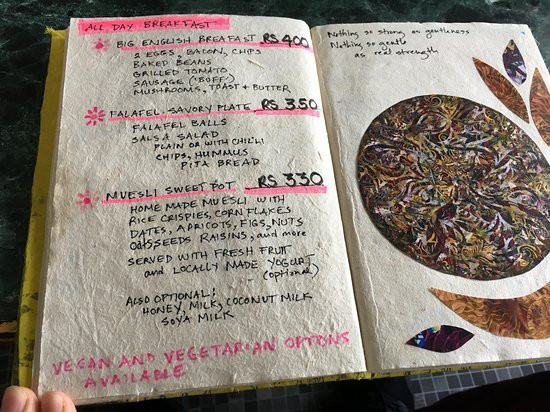 ALL DAY BREAKFAST
BIG ENGLISH BREAFAST RS 400
2 EGGS, BACON, CHIPS
BAKED BEANS
GRILLED TOMATO
SAUSAGE ("BUFF")
MUSHROOMS, TOAST + BUTTER
FALAFEL SAVORY PLATE RS 350
FALAFEL BALLS
SALSA SALAD
PLAIN OR WITH CHILLI
CHIPS, HUMMUS
PITA BREAD
MUESLI SWEET POT RS 330
HOME MADE MUESLI WITH
RICE CRISPIES, CORN FLAKES
DATES, APRICOTS, FIGS, NUTS
SEEDS RAISINS, and more
SERVED WITH FRESH FRUIT
and LOCALLY MADE YOGURT
(optional)
ALSO OPTIONAL:
HONEY, MILK, COCONUT MILK
SOYA MILK
VEGAN AND VEGETARIAN OPTIONS
AVAILABLE
Nothing so strong as gentleness
Nothing so gentle
as real strength